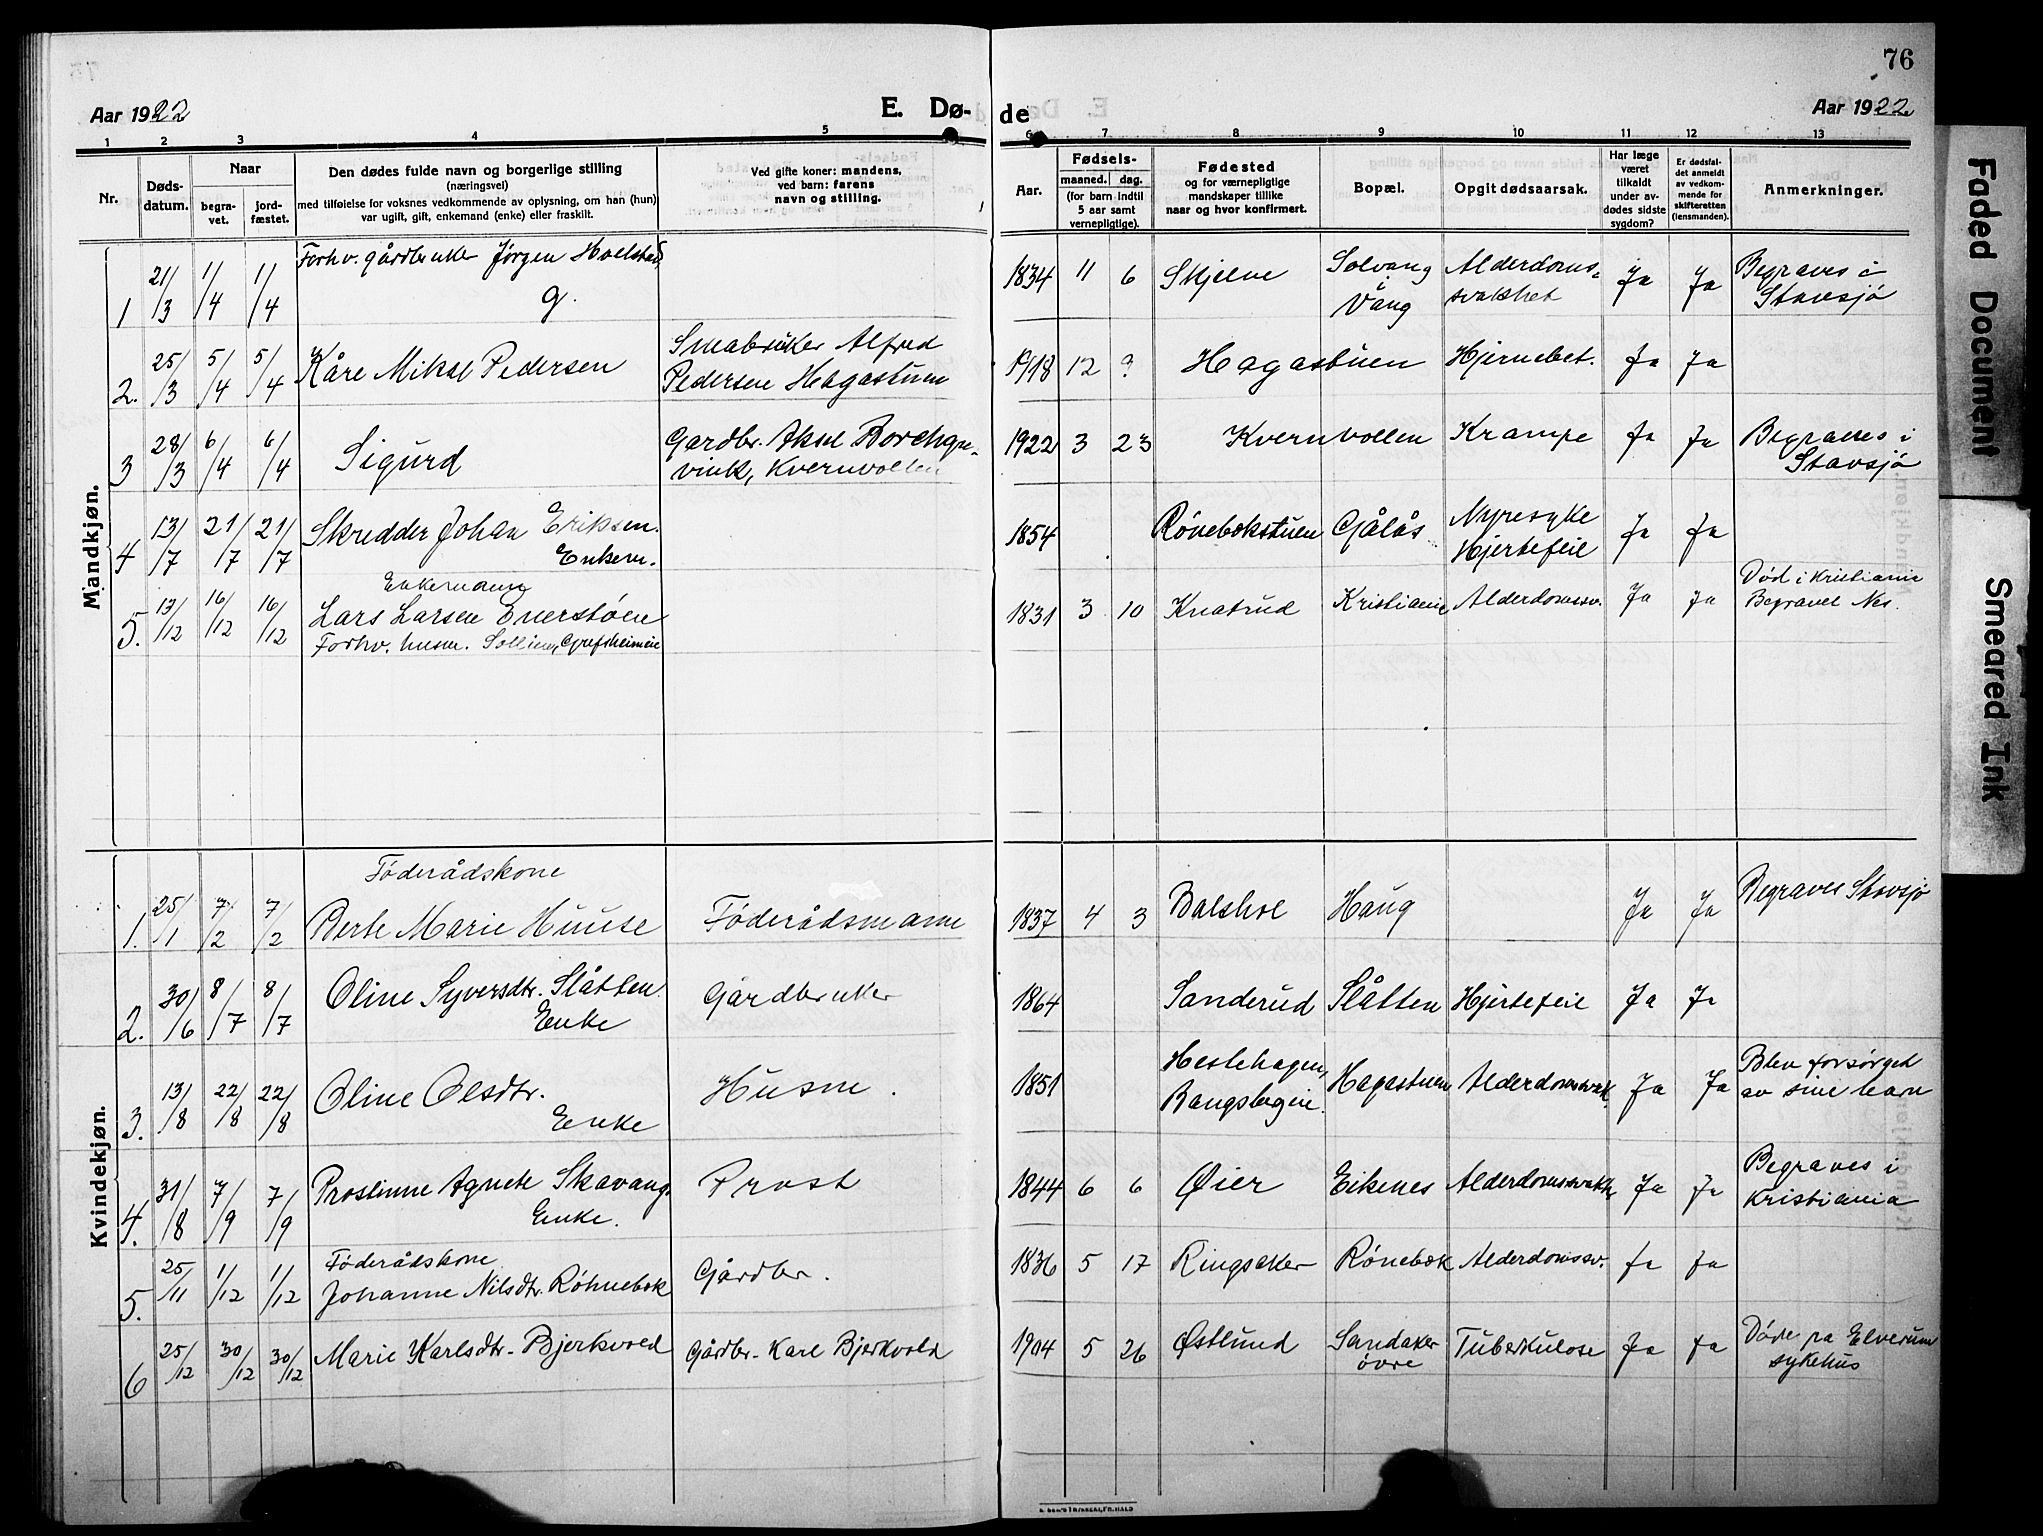 76
Aar 1922
E. Dø-
de
Aar 1922
1 2 3 4 5 6 7 8 9 10 11 12 13
Nr.
Døds-
datum.
Naar
begra-
vet.
jord-
fæstet.
Den dødes fulde navn og borgerlige stilling
(næringsvei)
med tilføielse for voksnes vedkommende av oplysning, om han (hun)
var ugift, gift, enkemand (enke) eller fraskilt.
Ved gifte koner: mandens,
ved barn: farens
navn og stilling.
Aar.
Fødsels-
maaned. dag.
(for barn indtil
5 aar samt
vernepligtige).
Fødested
og for værnepligtige
mandskaper tillike
naar og hvor konfirmert.
Bopæl.
Opgit dødsaarsak.
Har læge
været
tilkaldt
under av-
dødes sidste
sygdom?
Er dødsfal-
det anmeldt
av vedkom-
mende for
skifteretten
(lensmanden).
Anmerkninger.
Mandkjøn.
1 21/3 1/4 1/4 Forhv. gårdbruker Jørgen Hoelstad
g. 1834 11 6 Skjelve Solvang
Vang Alderdoms-
svakhet Ja Ja Begraves i
Stavsjø
2. 25/3 5/4 5/4 Kåre Mikal Pedersen Småbruker Alfred
Pedersen Hagastuen 1918 12 ? Hagastuen Hjernebet. Ja Ja
3 28/3 6/4 6/4 Sigurd Gardbr. Aksel Borchgre-
vink, Kvernvollen 1922 3 23 Kvernvollen Krampe Ja Ja Begraves i
Stavsjø
4 13/7 21/7 21/7 Skredder Johan Eriksen.
Enkem. 1854 Rønebekstuen Gålås Nyresyke
Hjertefeil Ja Ja
5. 13/12 16/12 16/12 Enkemann
Lars Larsen Enerstøen
Forhv. husm. Sollien, Grefsheimeie 1831 3 10 Knatrud Kristiania Alderdomssv. Ja Ja Død i Kristiania
Begravet Nes.
Kvindekjøn.
1. 25/1 7/2 7/2 Føderådskone
Berte Marie Huuse Føderådsmann 1837 4 3 Balshol Haug Ja Ja Begraves Stavsjø
2. 30/6 8/7 8/7 Oline Syversdtr. Slåtten
Enke Gårdbruker 1864 Sanderud Slåtten Hjertefeil Ja Ja
3. 13/8 22/8 22/8 Oline Olsdtr.
Enke Husm. 1851 Heslehagen,
Bangsbergeie. Hagastuen Alderdomssvak. Ja Ja Blev forsørget
av sine barn
4. 31/8 7/9 7/9 Prostinne Agnete Skavang.
Enke. Prost 1844 6 6 Øier Eikenes Alderdomssvakh. Ja Ja Begraves i
Kristiania
5. 25/11 1/12 1/12 Føderådskone
Johanne Nilsdtr. Røhnebæk Gårdbr. 1836 5 17 Ringsaker Rønebæk Alderdomssv. Ja Ja
6 25/12 30/12 30/12 Marie Karlsdtr. Bjerkvold Gårdbr. Karl Bjerkvold 1904 5 26 Østlund Sandaker
øvre Tuberkulose Ja Ja Døde på Elverum
sykehus
Faded Document
Smeared Ink